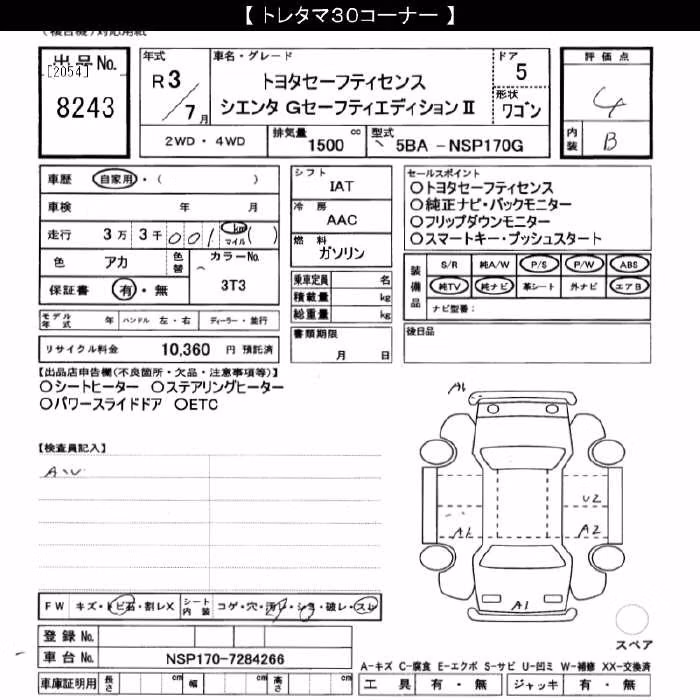 【 トレタマ30コーナー 】
(複合機)対応用紙
出品No.
[2054]
8243
年式
R 3 / 7 月
車名・グレード
トヨタセーフティセンス
シエンタ GセーフティエディションⅡ
ドア
5
形状
ワゴン
2WD・4WD
排気量
1500 cc
型式
5BA - NSP170G
評価点
4
内装
B
車歴 自家用・( )
車検 年 月
走行 3万 3千 001 km マイル ( )
色 アカ
色替
カラーNo.
3T3
保証書 有・無
シフト
IAT
冷房
AAC
燃料
ガソリン
乗車定員 名
積載量 kg
総重量 kg
セールスポイント
〇トヨタセーフティセンス
〇純正ナビ・バックモニター
〇フリップダウンモニター
〇スマートキー・プッシュスタート
装備品
S/R 純A/W P/S P/W ABS
純TV 純ナビ 革シート 外ナビ エアB
ナビ型番:
モデル年式 年 ハンドル 左・右 ディーラー・並行
書類期限
月 日
後日品
リサイクル料金 10,360 円 預託済
【出品店申告欄(不良箇所・欠品・注意事項等)】
〇シートヒーター 〇ステアリングヒーター
〇パワースライドドア 〇ETC
【検査員記入】
A・U
A1
U2
A1
A2
A1
FW キズ・トビ石・割レX
シート内装 コゲ・穴・汚レ・シミ・破レ・スレ
登録No.
車台No. NSP170-7284266
スペア
A-キズ C-腐食 E-エクボ S-サビ U-凹ミ W-補修 XX-交換済
車庫証明用 長さ cm 幅 cm 高さ cm
工具 有・無 ジャッキ 有・無